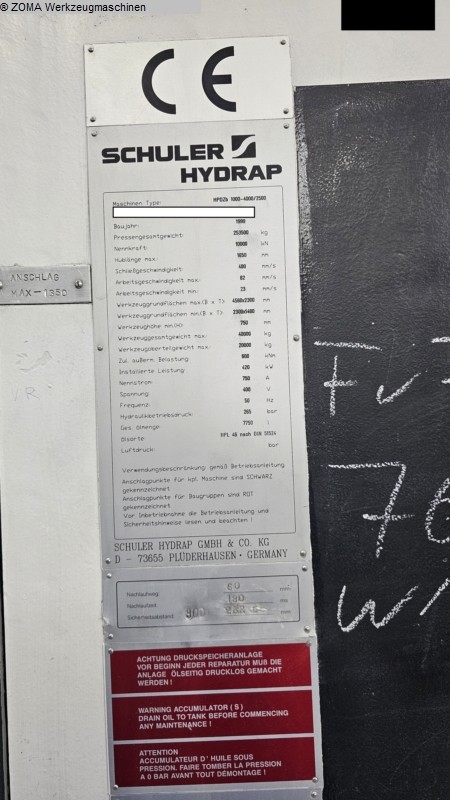 © ZOMA Werkzeugmaschinen
CE
SCHULER
HYDRAP
Maschinen Type: HPDZb 1000-4000/3500
Baujahr:
Pressengesamtgewicht: 253500 kg
Nennkraft: 10000 kN
Hublänge max: 1050 mm
Schließgeschwindigkeit: 400 mm/s
Arbeitsgeschwindigkeit max: 62 mm/s
Arbeitsgeschwindigkeit min: 23 mm/s
Werkzeuggrundflächen max.(B x T): 4500x2300 mm
Werkzeuggrundflächen min(B x T): 2300x1400 mm
Werkzeughöhe min: 750 mm
Werkzeuggesamtgewicht max: 40000 kg
Werkzeugoberteilgewicht max: 20000 kg
Zul. außerm. Belastung 800 kNm
Installierte Leistung: 420 kW
Nennstrom: 750 A
Spannung: 400 V
Frequenz: 50 Hz
Hydraulikbetriebsdruck: bar
Ges. Ölmenge: 7750 l
Ölsorte HPL 46 nach DIN 51524
Luftdruck: bar
Verwendungsbeschränkung: gemäß Betriebsanleitung
Anschlagpunkte für kpl. Maschine sind SCHWARZ
gekennzeichnet
Anschlagpunkte für Baugruppen sind ROT
gekennzeichnet
Vor Inbetriebnahme die Betriebsanleitung und
Sicherheitshinweise lesen und beachten !
SCHULER HYDRAP GMBH & CO. KG
D - 73655 PLÜDERHAUSEN · GERMANY
ANSCHLAG
MAX-1350
Nachlaufweg: 60 mm
Nachlaufzeit: 190 ms
Sicherheitsabstand: 300 mm
ACHTUNG DRUCKSPEICHERANLAGE
VOR BEGINN JEDER REPARATUR MUß DIE
ANLAGE ÖLSEITIG DRUCKLOS GEMACHT
WERDEN !
WARNING ACCUMULATOR ( S )
DRAIN OIL TO TANK BEFORE COMMENCING
ANY MAINTENANCE !
ATTENTION
ACCUMULATEUR D' HUILE SOUS
PRESSION. FAIRE TOMBER LA PRESSION
A 0 BAR AVANT TOUT DÉMONTAGE !